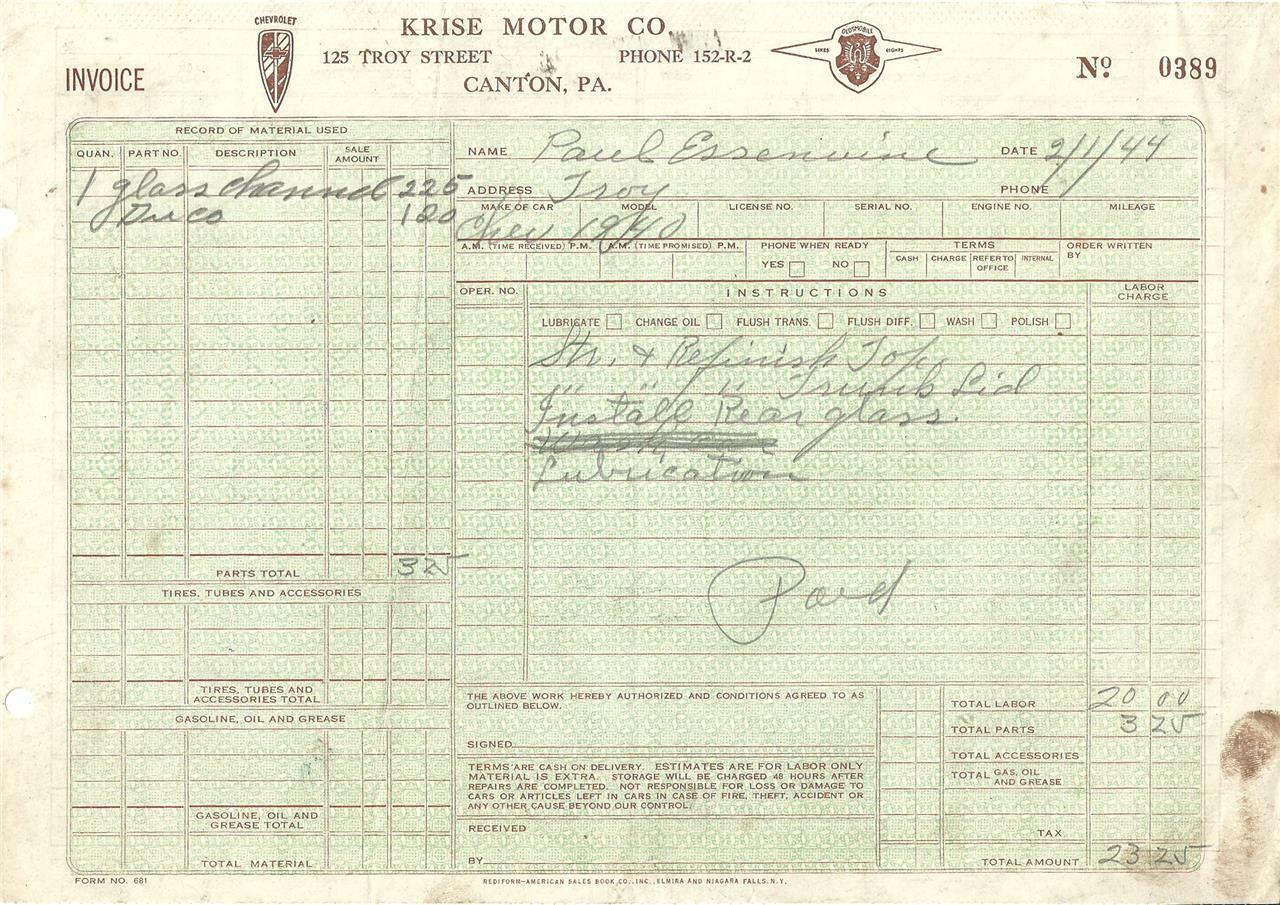 CHEVROLET
KRISE MOTOR CO.
125 TROY STREET PHONE 152-R-2
CANTON, PA.
OLDSMOBILE
SIXES EIGHTS
INVOICE
Nº 0389
RECORD OF MATERIAL USED
QUAN. PART NO. DESCRIPTION SALE AMOUNT
1 glass channel 2 25
Duco 1 00
PARTS TOTAL 3 25
TIRES, TUBES AND ACCESSORIES
TIRES, TUBES AND
ACCESSORIES TOTAL
GASOLINE, OIL AND GREASE
GASOLINE, OIL AND
GREASE TOTAL
TOTAL MATERIAL
NAME Paul Essenwine DATE 2/1/44
ADDRESS Troy PHONE
MAKE OF CAR MODEL LICENSE NO. SERIAL NO. ENGINE NO. MILEAGE
Chev 1940
A.M. (TIME RECEIVED) P.M. A.M. (TIME PROMISED) P.M. PHONE WHEN READY TERMS ORDER WRITTEN
BY
YES NO CASH CHARGE REFER TO OFFICE INTERNAL
OPER. NO. INSTRUCTIONS LABOR CHARGE
LUBRICATE CHANGE OIL FLUSH TRANS. FLUSH DIFF. WASH POLISH
Str. & Refinish Top
" " " Trunk Lid
Install Rear glass
Lubrication
Paid
THE ABOVE WORK HEREBY AUTHORIZED AND CONDITIONS AGREED TO AS
OUTLINED BELOW.
SIGNED
TERMS ARE CASH ON DELIVERY. ESTIMATES ARE FOR LABOR ONLY
MATERIAL IS EXTRA. STORAGE WILL BE CHARGED 48 HOURS AFTER
REPAIRS ARE COMPLETED. NOT RESPONSIBLE FOR LOSS OR DAMAGE TO
CARS OR ARTICLES LEFT IN CARS IN CASE OF FIRE, THEFT, ACCIDENT OR
ANY OTHER CAUSE BEYOND OUR CONTROL.
RECEIVED
BY
TOTAL LABOR 20 00
TOTAL PARTS 3 25
TOTAL ACCESSORIES
TOTAL GAS, OIL
AND GREASE
TAX
TOTAL AMOUNT 23 25
FORM NO. 681
REDIFORM—AMERICAN SALES BOOK CO., INC., ELMIRA AND NIAGARA FALLS, N.Y.